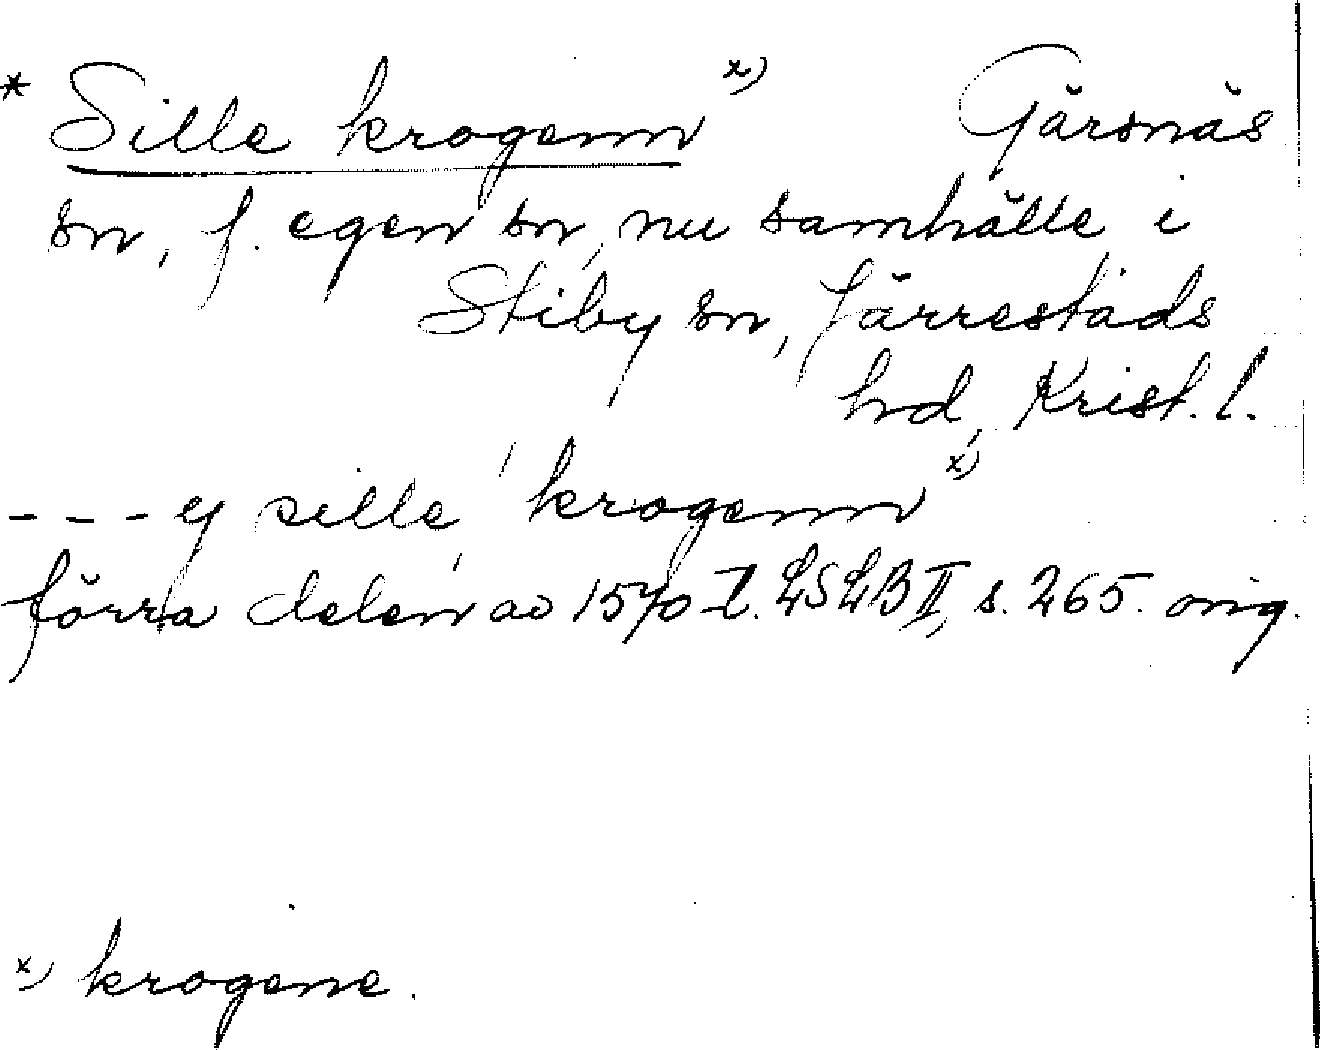 * Sille krogenn x) Gärsnäs
sn, f. egen sn, nu samhälle i
Stiby sn, Järrestads
hd, Krist. l.
- - - ej sille krogenn x)
förra delen av 1570-t. LSLB II, s. 265. orig.
x) krogene.